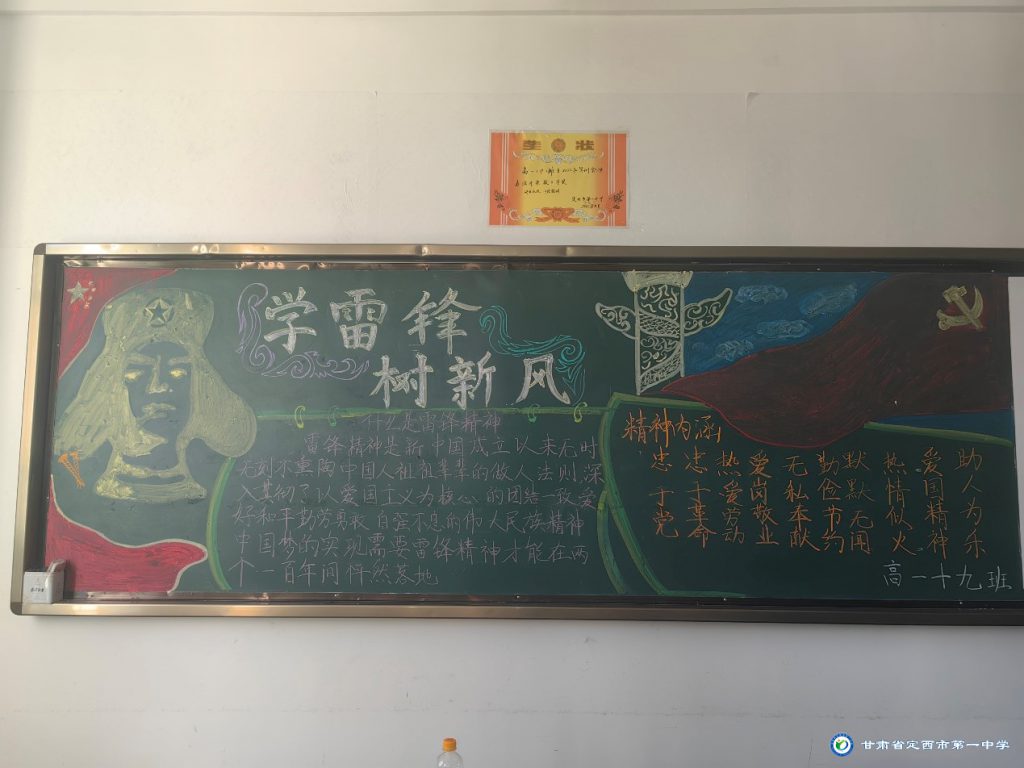 奖状
学雷锋
树新风
什么是雷锋精神
雷锋精神是新中国成立以来无时
无刻不熏陶中国人祖祖辈辈的做人法则,深
入贯彻了以爱国主义为核心的团结一致爱
好和平勤劳勇敢自强不息的伟人民族精神
中国梦的实现需要雷锋精神才能在两
个一百年间怦然落地
精神内涵
忠于党
忠于革命
热爱劳动
爱岗敬业
无私奉献
勤俭节约
默默无闻
热情似火
爱国精神
助人为乐
高一十九班
甘肃省定西市第一中学